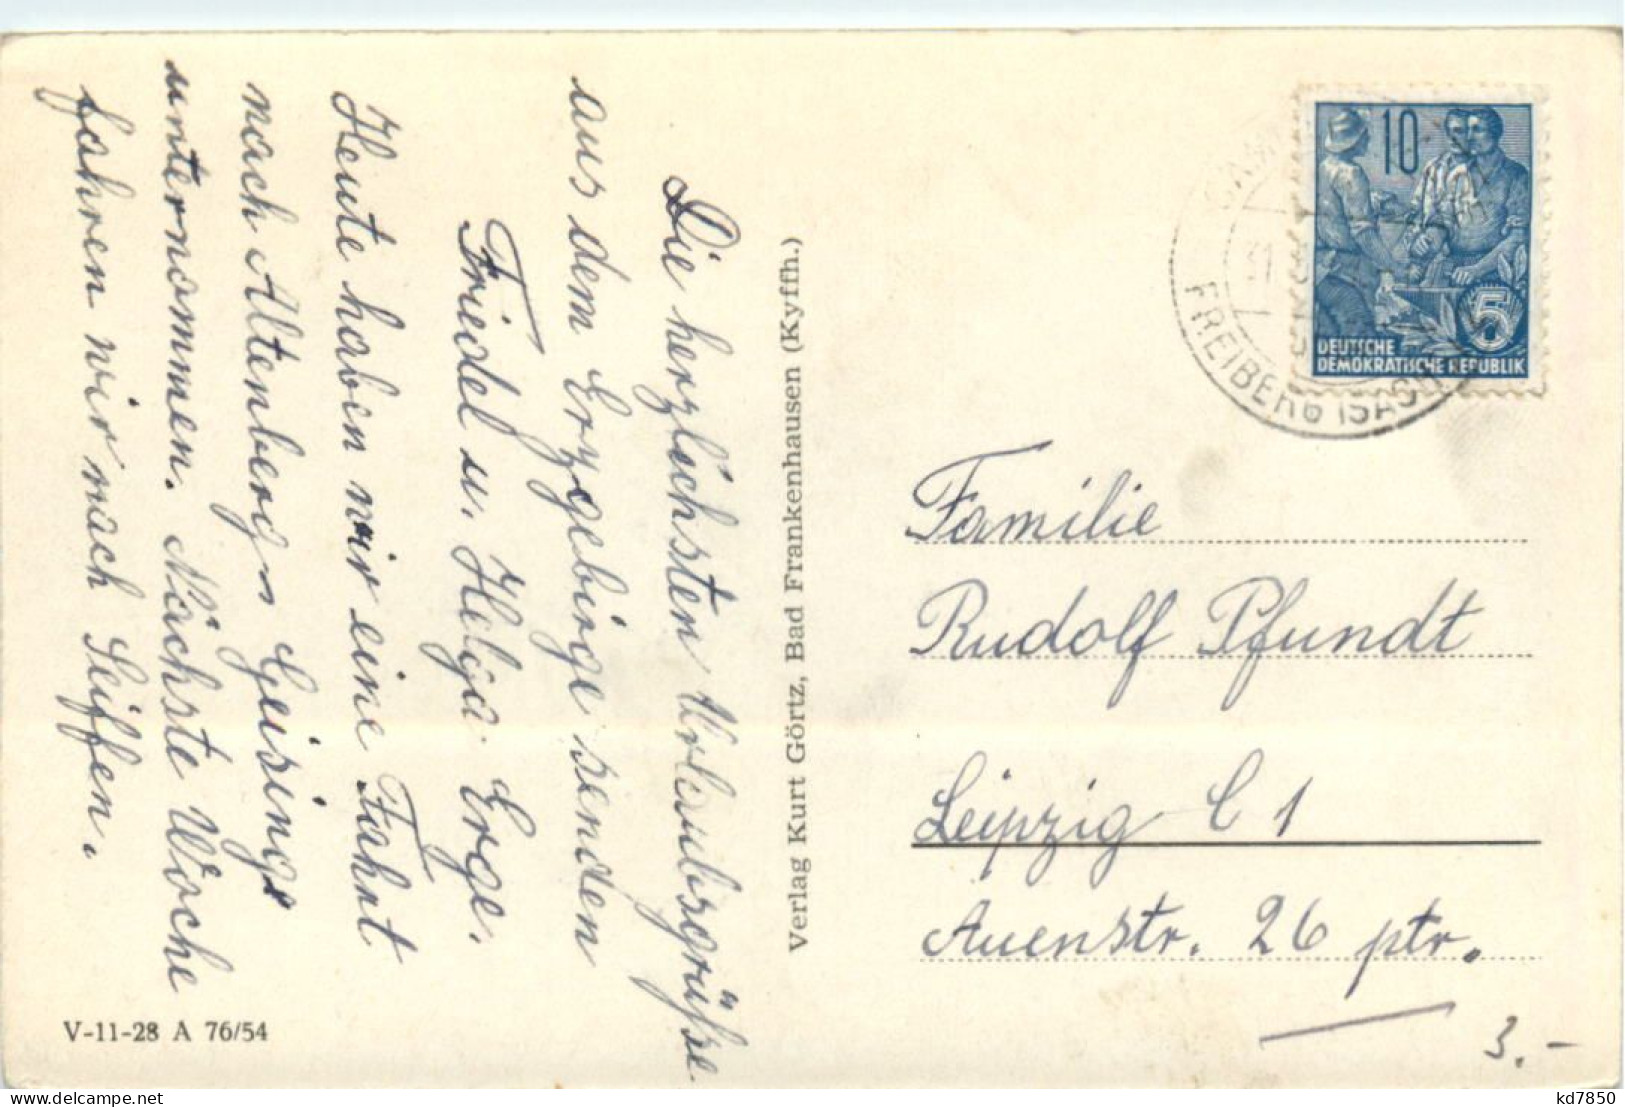 Die herzlichsten Urlaubsgrüße
aus dem Erzgebirge senden
Friedel u. Helga Erge.
Heute haben wir eine Fahrt
nach Altenberg, Geising
unternommen. Nächste Woche
fahren wir nach Seiffen.
V-11-28 A 76/54
Verlag Kurt Görtz, Bad Frankenhausen (Kyffh.)
10
5
DEUTSCHE
DEMOKRATISCHE REPUBLIK
FREIBERG (SACHS)
Familie
Rudolf Pfundt
Leipzig C 1
Auenstr. 26 ptr.
3.-
kd7850